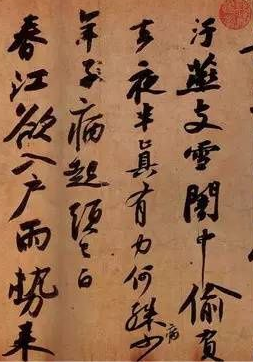 汙燕支雪闇中偷負
去夜半真有力何殊少
年子病起頭已白
春江欲入戶雨勢來
病